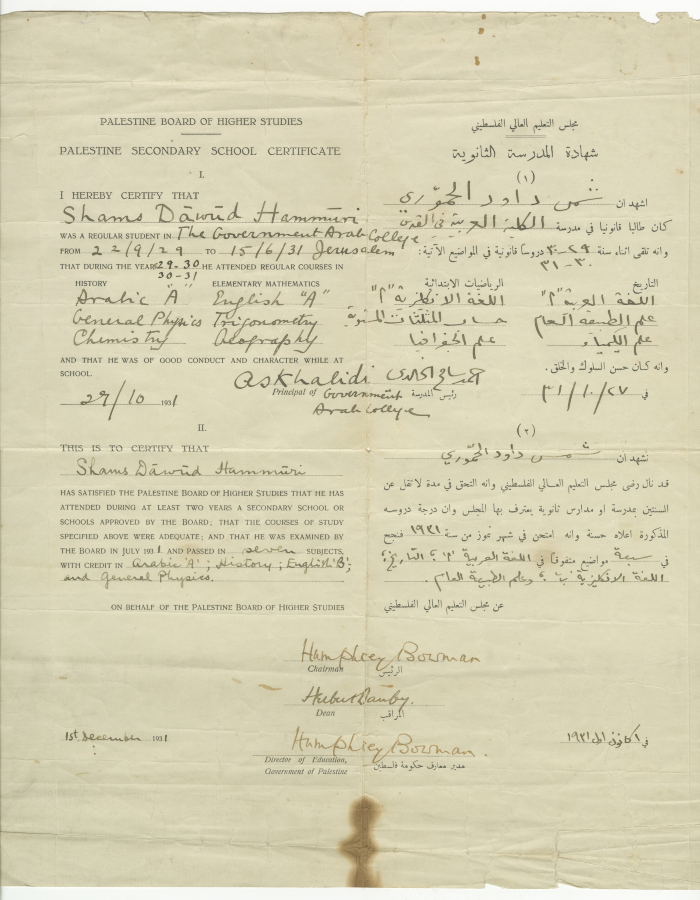 PALESTINE BOARD OF HIGHER STUDIES
PALESTINE SECONDARY SCHOOL CERTIFICATE
I.
I HEREBY CERTIFY THAT
Shams Dāwūd Hammūri
WAS A REGULAR STUDENT IN The Government Arab College
FROM 22/9/29 TO 15/6/31 Jerusalem
THAT DURING THE YEAR 29-30 HE ATTENDED REGULAR COURSES IN
30-31
HISTORY ELEMENTARY MATHEMATICS
Arabic "A" English "A"
General Physics Trigonometry
Chemistry Geography
AND THAT HE WAS OF GOOD CONDUCT AND CHARACTER WHILE AT
SCHOOL.
27/10 1931
ASKhalidi
Principal of Government
Arab College
II.
THIS IS TO CERTIFY THAT
Shams Dāwūd Hammūri
HAS SATISFIED THE PALESTINE BOARD OF HIGHER STUDIES THAT HE HAS
ATTENDED DURING AT LEAST TWO YEARS A SECONDARY SCHOOL OR
SCHOOLS APPROVED BY THE BOARD; THAT THE COURSES OF STUDY
SPECIFIED ABOVE WERE ADEQUATE; AND THAT HE WAS EXAMINED BY
THE BOARD IN JULY 1931 AND PASSED IN seven SUBJECTS,
WITH CREDIT IN Arabic 'A'; History; English 'B';
and General Physics.
ON BEHALF OF THE PALESTINE BOARD OF HIGHER STUDIES
مجلس التعليم العالي الفلسطيني
شهادة المدرسة الثانوية
(١)
اشهد ان شمس داود الحمّوري
كان طالبا قانونيا في مدرسة الكلية العربية في القدس
وانه تلقى اثناء سنة ٢٩-٣٠ دروسا قانونية في المواضيع الآتية:
٣٠-٣١
التاريخ الرياضيات الابتدائية
اللغة العربية "أ" اللغة الانكليزية "أ"
علم الطبيعة العام حساب المثلثات المستوية
علم الكيمياء علم الجغرافيا
وانه كان حسن السلوك والخلق.
رئيس المدرسة
في ٢٧/١٠/٣١
(٢)
نشهد ان شمس داود الحمّوري
قد نال رضى مجلس التعليم العالي الفلسطيني وانه التحق في مدة لا تقل عن
السنتين بمدرسة او مدارس ثانوية يعترف بها المجلس وان درجة دروسه
المذكورة اعلاه حسنة وانه امتحن في شهر تموز من سنة ١٩٣١ فنجح
في سبعة مواضيع متفوقا في اللغة العربية "أ"؛ التاريخ؛
اللغة الانكليزية "ب"؛ وعلم الطبيعة العام.
عن مجلس التعليم العالي الفلسطيني
Humphrey Bowman
Chairman الرئيس
Herbert Danby.
Dean المراقب
1st December 1931
Humphrey Bowman.
Director of Education,
Government of Palestine
مدير معارف حكومة فلسطين
في ١ كانون اول ١٩٣١